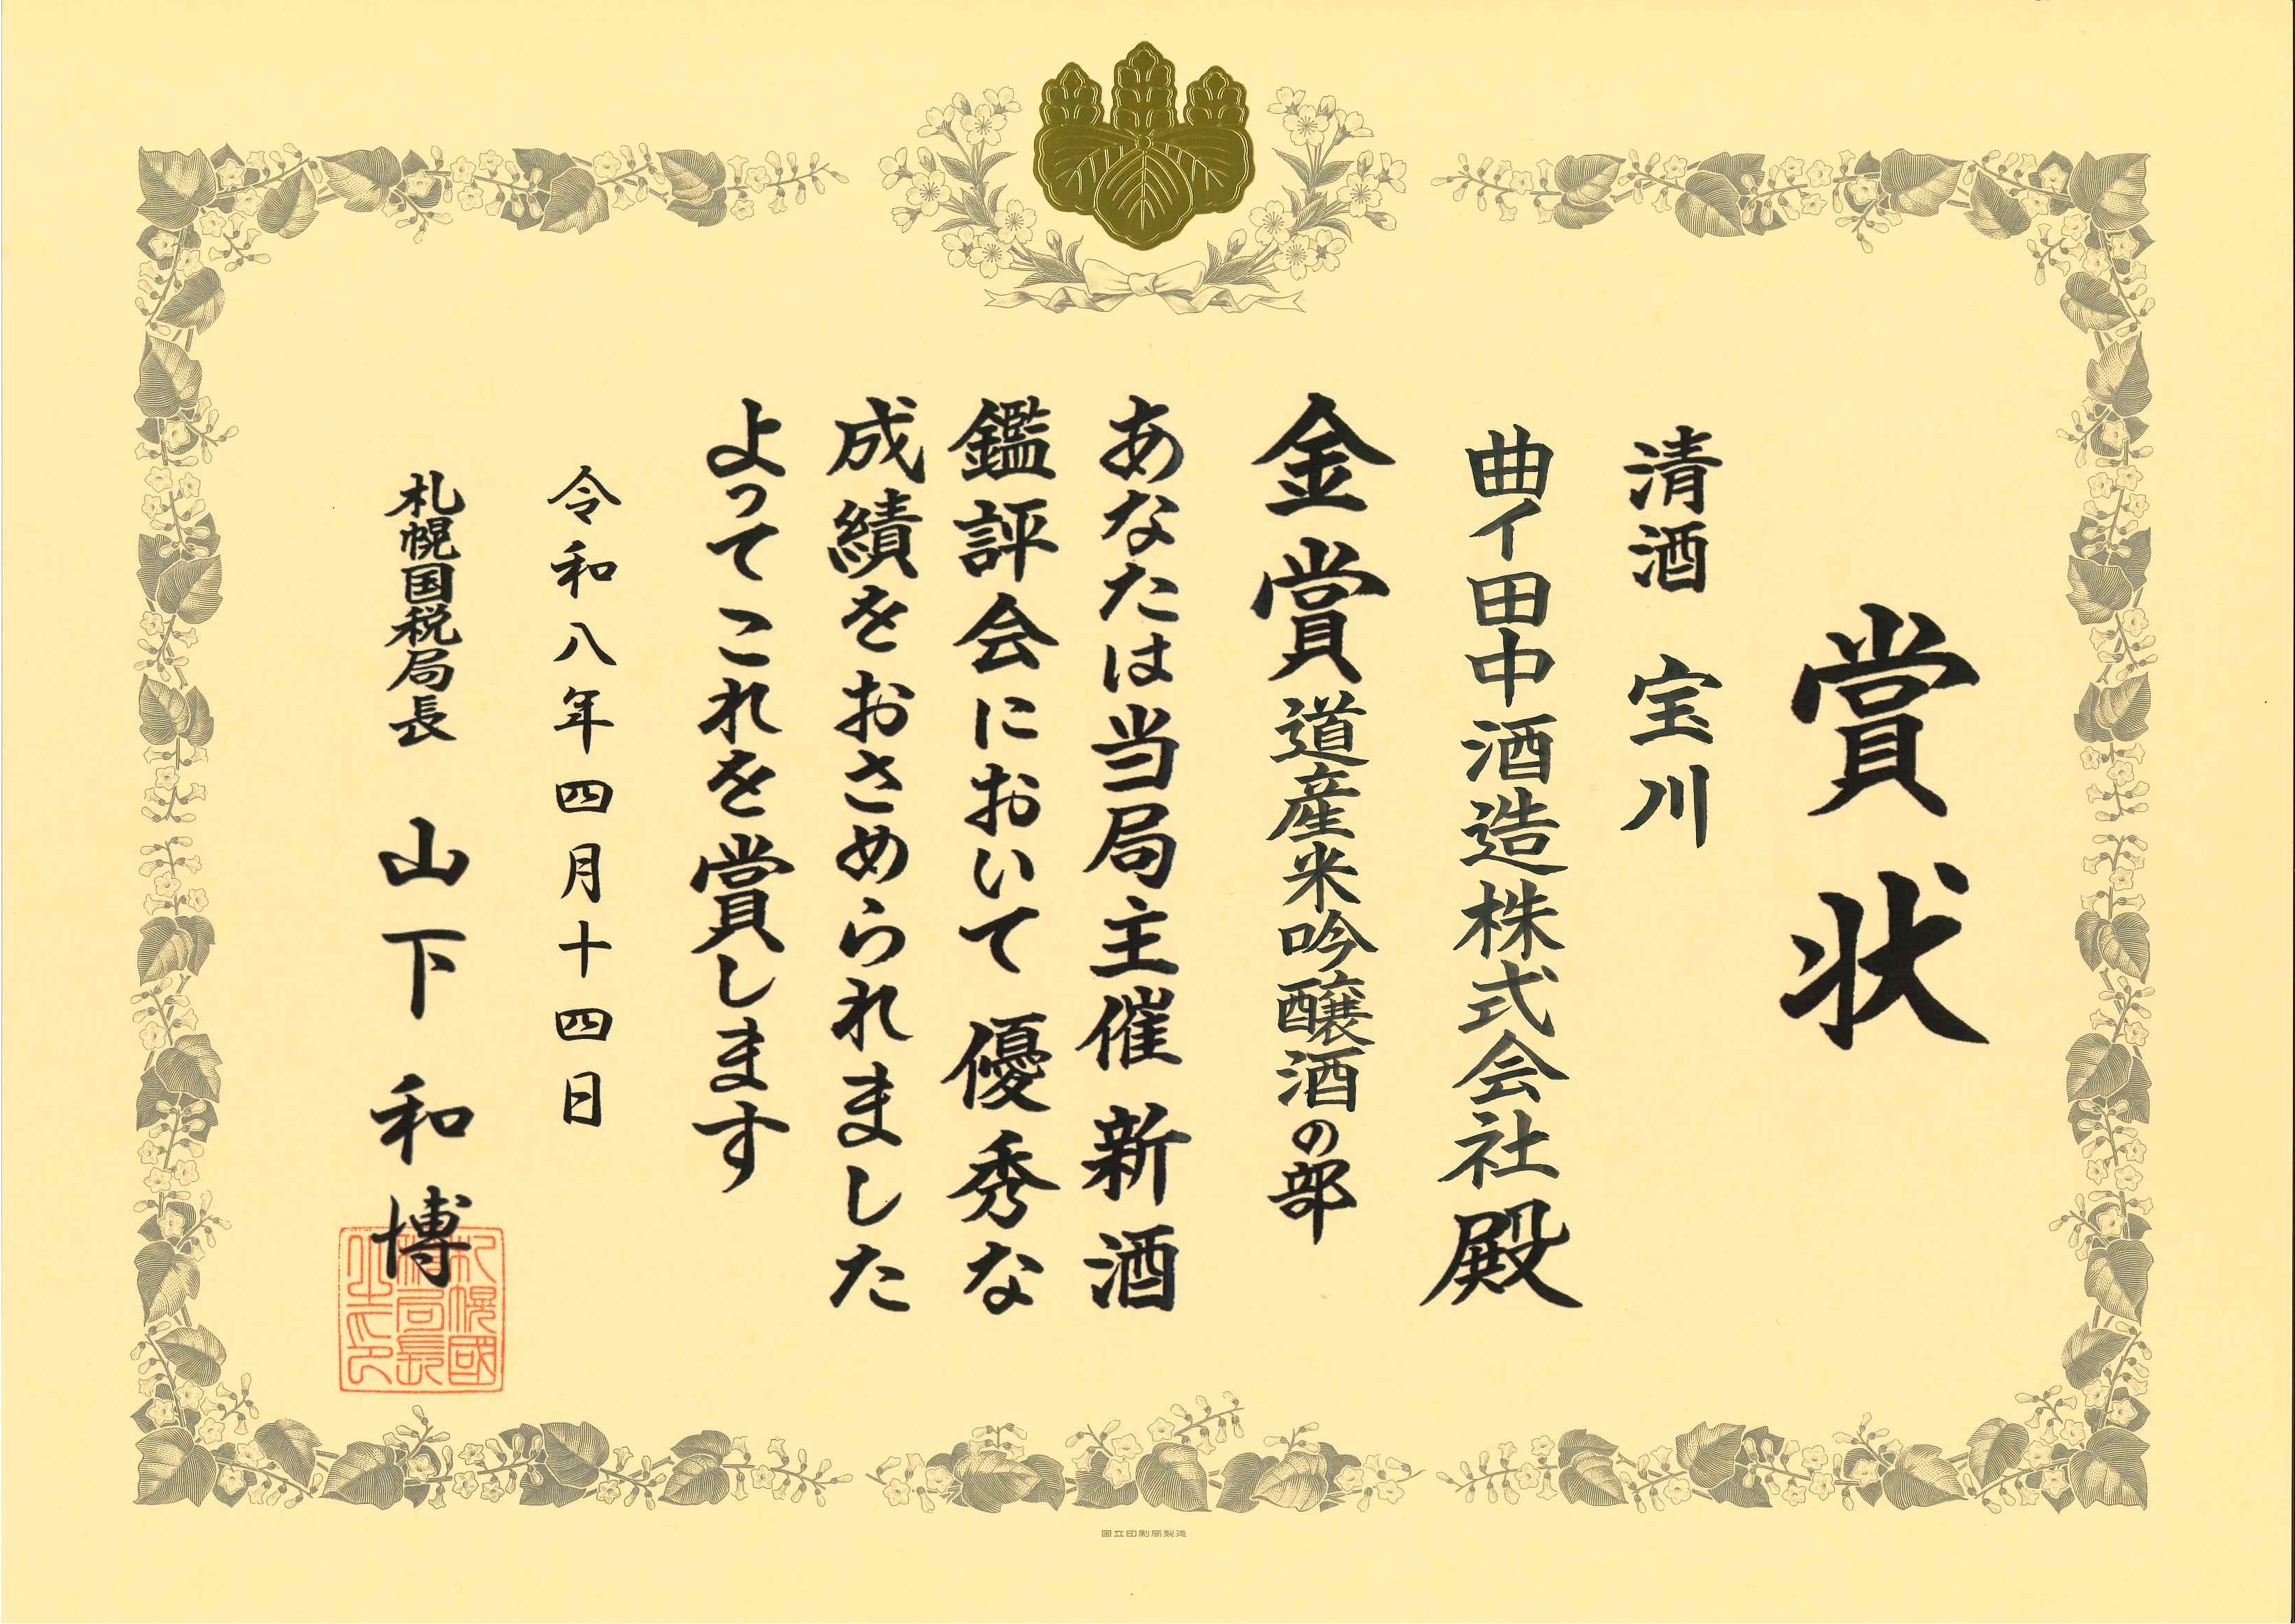 賞状
清酒 宝川
曲イ田中酒造株式会社殿
金賞 道産米吟醸酒の部
あなたは当局主催新酒
鑑評会において優秀な
成績をおさめられました
よってこれを賞します
令和八年四月十四日
札幌国税局長 山下和博
札幌國税局長之印
国立印刷局製造